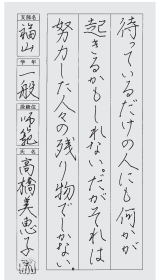 待っているだけの人にも何かが
起きるかもしれない。だがそれは
努力した人々の残り物でしかない。
支部名
福山
学年
一般
段級位
師範
氏名
高橋美恵子